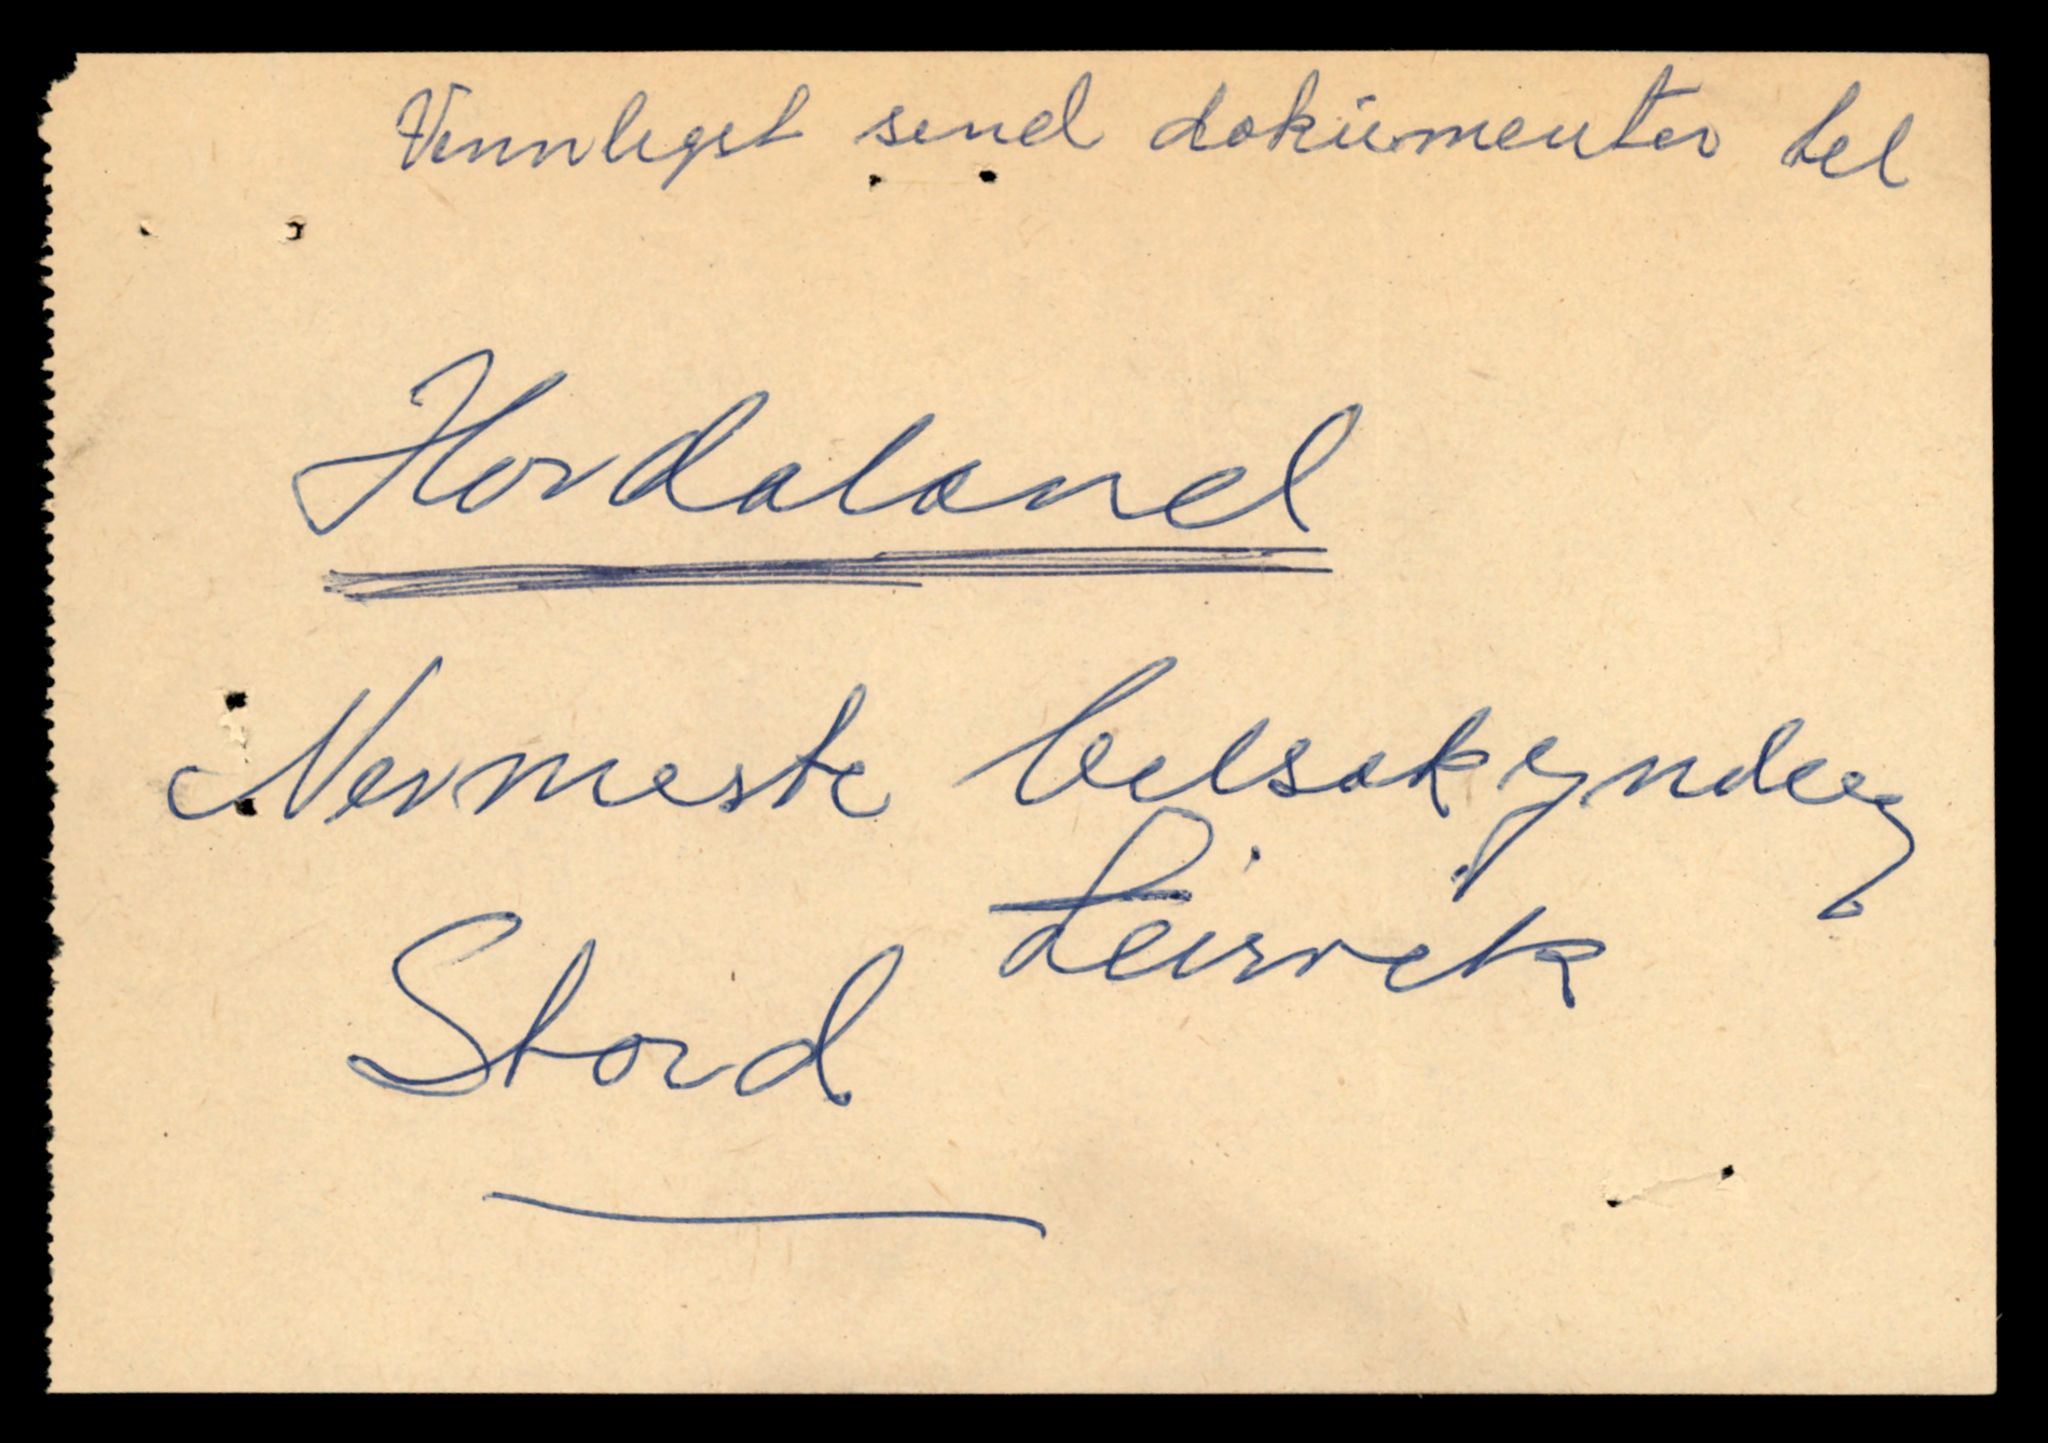 Vennligst send dokumenter til
Hordaland
Nermeste bilsakyndig
Leirvik
Stord